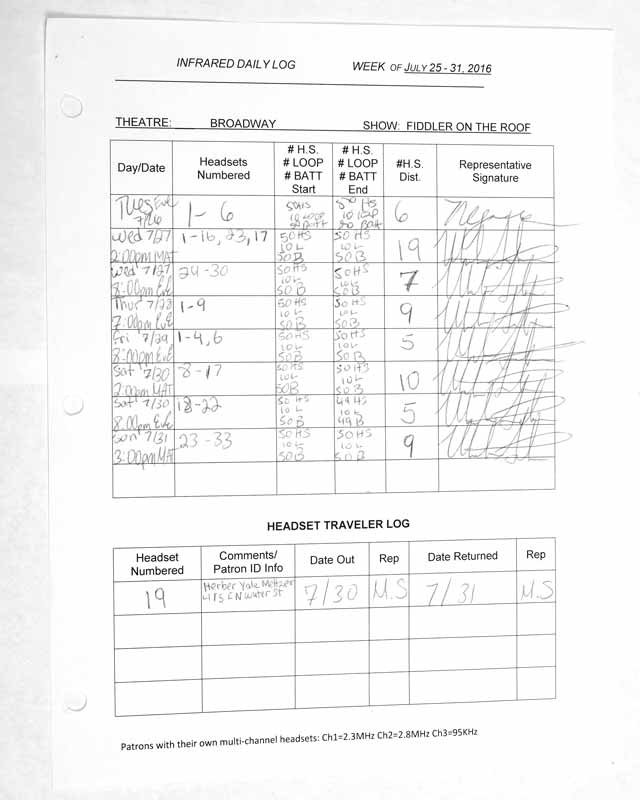 INFRARED DAILY LOG WEEK OF JULY 25 - 31, 2016
THEATRE: BROADWAY SHOW: FIDDLER ON THE ROOF
Day/Date Headsets Numbered # H.S. # LOOP # BATT Start # H.S. # LOOP # BATT End #H.S. Dist. Representative Signature
Tues Eve 7/26 1-6 50HS 10 LOOP 50 BATT 50 HS 10 LOOP 50 Batt 6
Wed 7/27 2:00pm MAT 1-16, 23, 17 50HS 10L 50B 50HS 10L 50B 19
Wed 7/27 8:00pm Eve 24-30 50HS 10L 50B 50HS 10L 50B 7
Thur 7/28 7:00pm Eve 1-9 50HS 10L 50B 50HS 10L 50B 9
Fri 7/29 8:00pm Eve 1-4, 6 50HS 10L 50B 50HS 10L 50B 5
Sat 7/30 2:00pm MAT 8-17 50HS 10L 50B 50HS 10L 50B 10
Sat 7/30 8:00pm Eve 18-22 50HS 10L 50B 49HS 10L 49B 5
Sun 7/31 3:00pm MAT 23-33 50HS 10L 50B 50HS 10L 50B 9
HEADSET TRAVELER LOG
Headset Numbered Comments/ Patron ID Info Date Out Rep Date Returned Rep
19 Herber Yale Meltzer N Water St 7/30 M.S 7/31 M.S
Patrons with their own multi-channel headsets: Ch1=2.3MHz Ch2=2.8MHz Ch3=95KHz